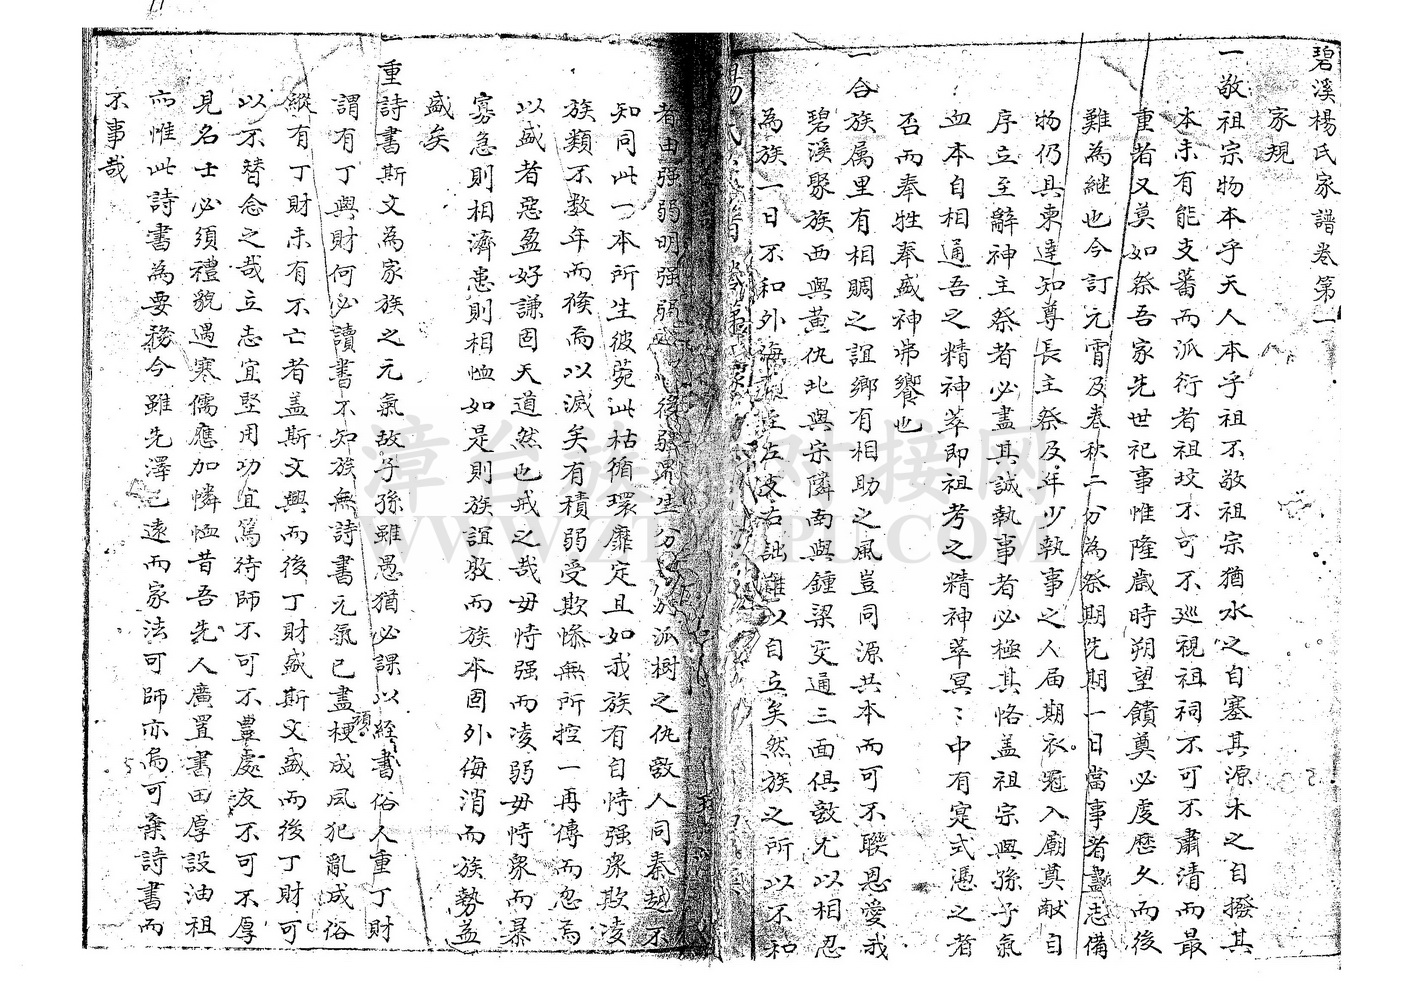 碧溪楊氏家譜卷第一
家規
一敬祖宗物本乎天人本乎祖不敬祖宗猶水之自塞其源木之自撥其
本未有能支蕃而派衍者祖坟不可不巡視祖祠不可不肅清而最
重者又莫如祭吾家先世祀事惟隆歲時朔望饋奠必虔歷久而後
難為継也今訂元宵及春秋二分為祭期先期一日當事者盡志備
物仍具柬達知尊長主祭及年少執事之人届期衣冠入廟奠献自
序立至辭神主祭者必盡其誠執事者必極其恪盖祖宗與孫子氣
血本自相通吾之精神萃即祖考之精神萃冥〻中有寔式憑之者
否而奉牲奉盛神弗饗也
一合族属里有相賙之誼鄉有相助之風豈同源共本而可不聯恩愛我
碧溪聚族西與黄仇北與宗隣南與鍾梁交通三面俱敵尤以相忍
為族一日不和外侮左右詘難以自立矣然族之所以不和
者由强弱明强弱後弱派樹之仇敵人同秦越不
知同此一本所生彼菀此枯循環靡定且如我族有自恃强衆欺凌
族類不数年而條焉以滅矣有積弱受欺慘無所控一再傳而忽焉
以盛者惡盈好謙固天道然也戒之哉毋恃强而凌弱毋恃衆而暴
寡急則相濟患則相恤如是則族誼敦而族本固外侮消而族勢益
盛矣
一重詩書斯文為家族之元氣故子孫雖愚猶必課以經書俗人重丁財
謂有丁與財何必讀書不知族無詩書元氣已盡梗頑成風犯亂成俗
縱有丁財未有不亡者盖斯文興而後丁財盛斯文盛而後丁財可
以不替念之哉立志宜堅用功宜篤待師不可不豊處友不可不厚
見名士必須禮貌遇寒儒應加憐恤昔吾先人廣置書田厚設油租
而惟此詩書為要務今雖先澤已遠而家法可師亦烏可棄詩書而
不事哉
漳台族谱对接网